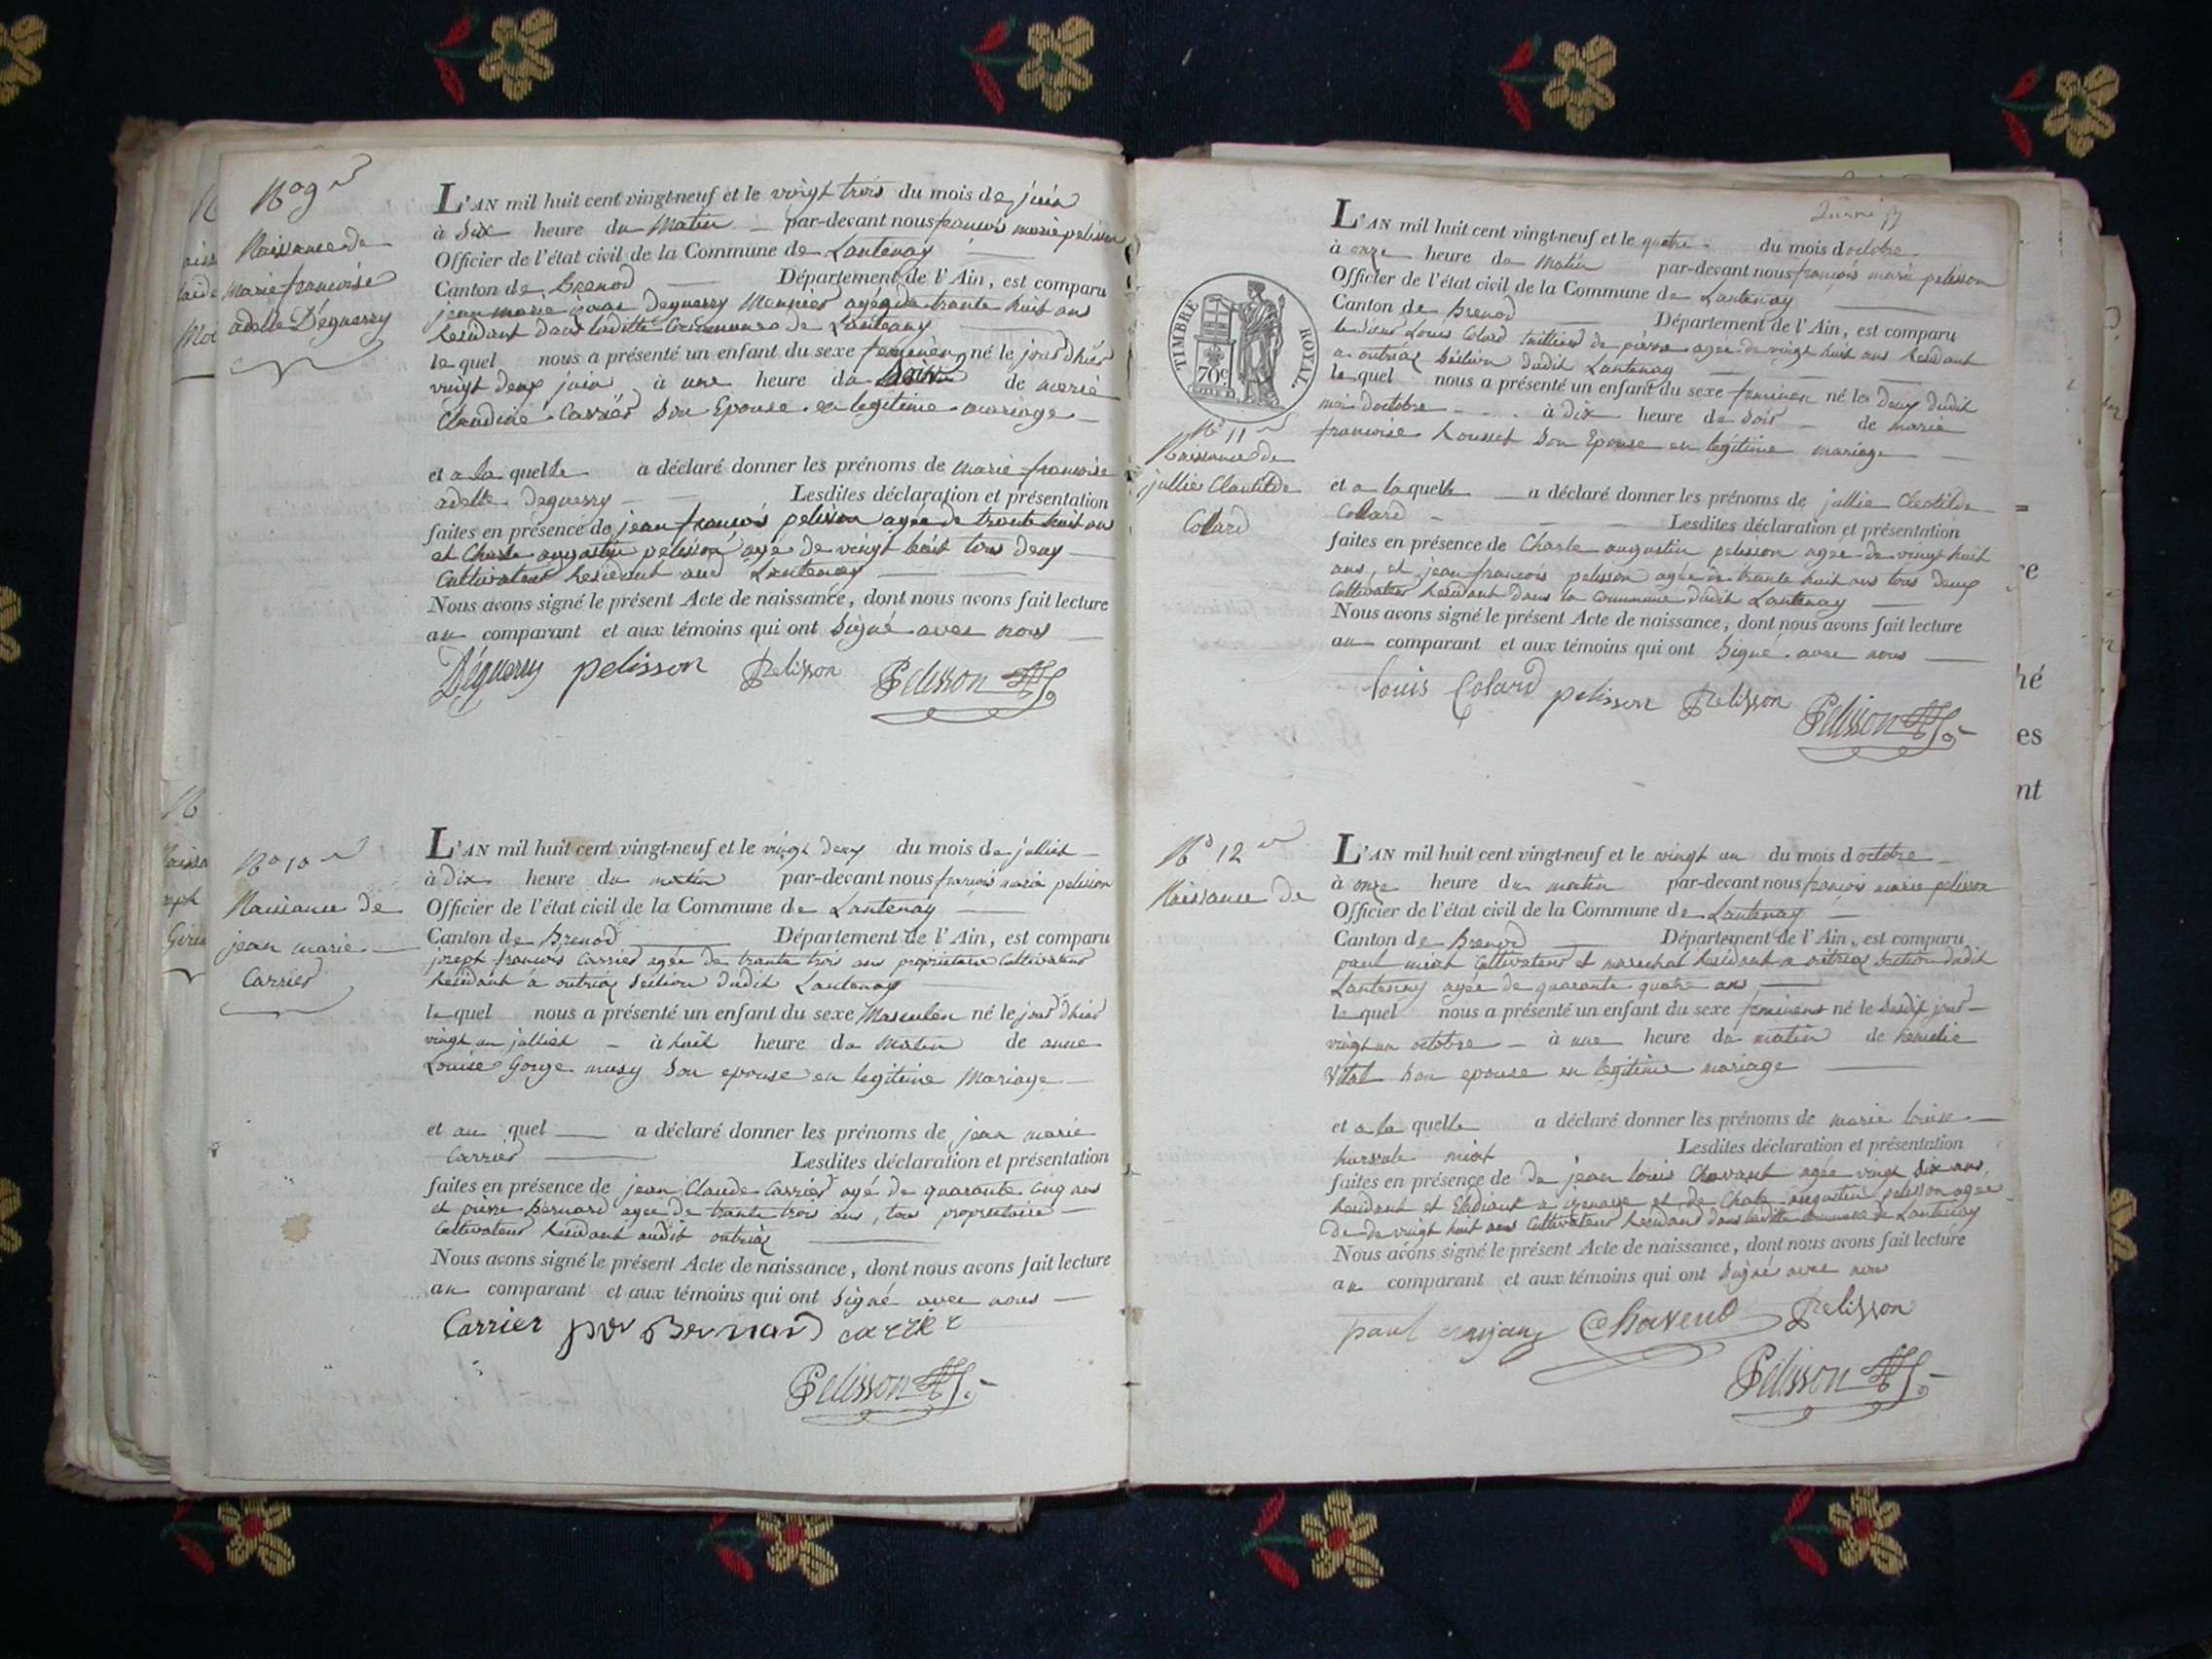 No 9
Naissance de
Marie françoise
adelle Déguerry
L'AN mil huit cent vingt-neuf et le vingt trois du mois de juin
à Six heure du Matin par-devant nous françois marie pelisson
Officier de l'état civil de la Commune de Lantenay
Canton de Brenod Département de l'Ain, est comparu
jean marie Deguerry Meunier agée de trante huit ans
Residant dans laditte Commune de Lantenay
le quel nous a présenté un enfant du sexe femenien né le jour d'hier
vingt deux juin à une heure du de marie
Claudine Carrier Son Epouse en legitime mariage
et a la quelle a déclaré donner les prénoms de marie françoise
adelle deguerry Lesdites déclaration et présentation
faites en présence de jean françois pelisson agée de trante huit ans
et Charle augustin pelisson agé de vingt huit tous deux
Cultivateur Residant aud Lantenay
Nous avons signé le présent Acte de naissance, dont nous avons fait lecture
au comparant et aux témoins qui ont Signé avec nous
Déguerry pelisson Pelisson Pelisson
No 10
Naissance de
jean marie
Carrier
L'AN mil huit cent vingt-neuf et le vingt deux du mois de julliet
à Dix heure du matin par-devant nous françois marie pelisson
Officier de l'état civil de la Commune de Lantenay
Canton de Brenod Département de l'Ain, est comparu
joseph françois Carrier agée de trante trois ans propriétaire Cultivateur
Residant à outriaz Section dudit Lantenay
le quel nous a présenté un enfant du sexe Masculen né le jour d'hier
vingt un julliet à huit heure du Matin de anne
Louise Gorge musy Son epouse en legitime Mariage
et au quel a déclaré donner les prénoms de jean marie
Carrier Lesdites déclaration et présentation
faites en présence de jean Claude Carrier agé de quarante cinq ans
et pierre Bernard agée de trante trois ans, tous proprietaire
Cultivateur Residant audit outriaz
Nous avons signé le présent Acte de naissance, dont nous avons fait lecture
au comparant et aux témoins qui ont Signé avec nous
Carrier Bernard carrier
Pelisson
TIMBRE ROYAL
70c
No 11
Naissance de
jullie Clautilde
Colard
L'AN mil huit cent vingt-neuf et le quatre du mois doctobre
à onze heure du Matin par-devant nous françois marie pelisson
Officier de l'état civil de la Commune de Lantenay
Canton de Brenod Département de l'Ain, est comparu
le sieur Louis Colard tallieur de pierre agée de vingt huit ans Residant
a outriaz Section dudit Lantenay
le quel nous a présenté un enfant du sexe feminen né le Deux dudit
moi doctobre à dix heure du Soir de marie
françoise Rousset Son Epouse en legitime mariage
et a la quelle a déclaré donner les prénoms de jullie Cleotilde
Collard Lesdites déclaration et présentation
faites en présence de Charle augustin pelisson agée de vingt huit
ans, et jean françois pelisson agée de trante huit ans tous deux
Cultivateur Residant dans la Commune dudit Lantenay
Nous avons signé le présent Acte de naissance, dont nous avons fait lecture
au comparant et aux témoins qui ont Signé avec nous
louis Colard pelisson Pelisson Pelisson
No 12
Naissance de
L'AN mil huit cent vingt-neuf et le vingt un du mois d octobre
à onze heure du matin par-devant nous françois marie pelisson
Officier de l'état civil de la Commune de Lantenay
Canton de Brenod Département de l'Ain, est comparu
paul miat Cultivateur et marechal Residant a outriaz Section dudit
Lantenay agée de quarante quatre ans
le quel nous a présenté un enfant du sexe né le Susdit jour
vingt un octobre à une heure du matin de
Vital Son epouse en legitime mariage
et a la quelle a déclaré donner les prénoms de marie louise
miat Lesdites déclaration et présentation
faites en présence de De jean louis Chavant agée vingt Six ans,
Residant et Etudiant a et de Charle augustin pelisson agée
De de vingt huit ans Cultivateur Residant dans laditte commune de Lantenay
Nous avons signé le présent Acte de naissance, dont nous avons fait lecture
au comparant et aux témoins qui ont Signé avec nous
paul Chavent Pelisson
Pelisson